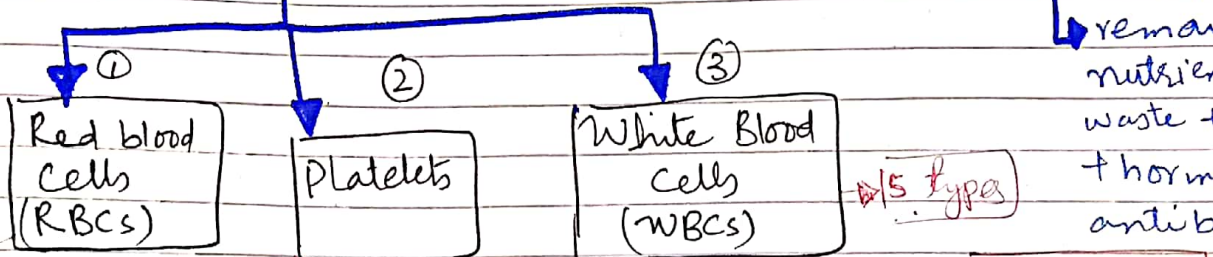 ①
②
③
Red blood
cells
(RBCs)
Platelets
White Blood
cells
(WBCs)
5 types
remai
nutrien
waste +
+ horm
antib